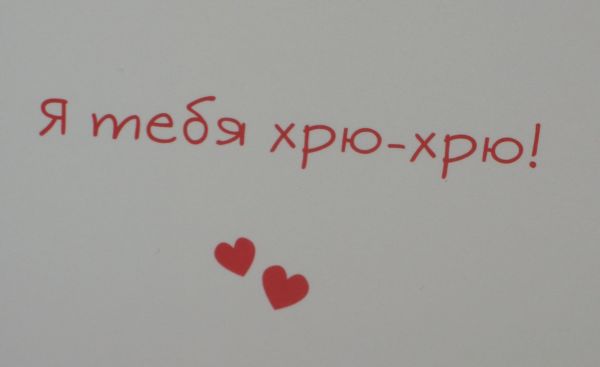 Я тебя хрю-хрю!